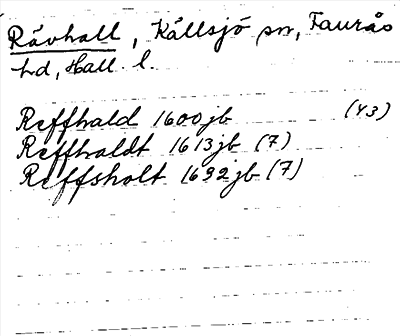 Rävhall, Källsjö sn, Faurås
hd, Hall. l.
Reffhald 1600jb (43)
Reffhaldt 1613jb (7)
Reffsholt 1692jb (7)